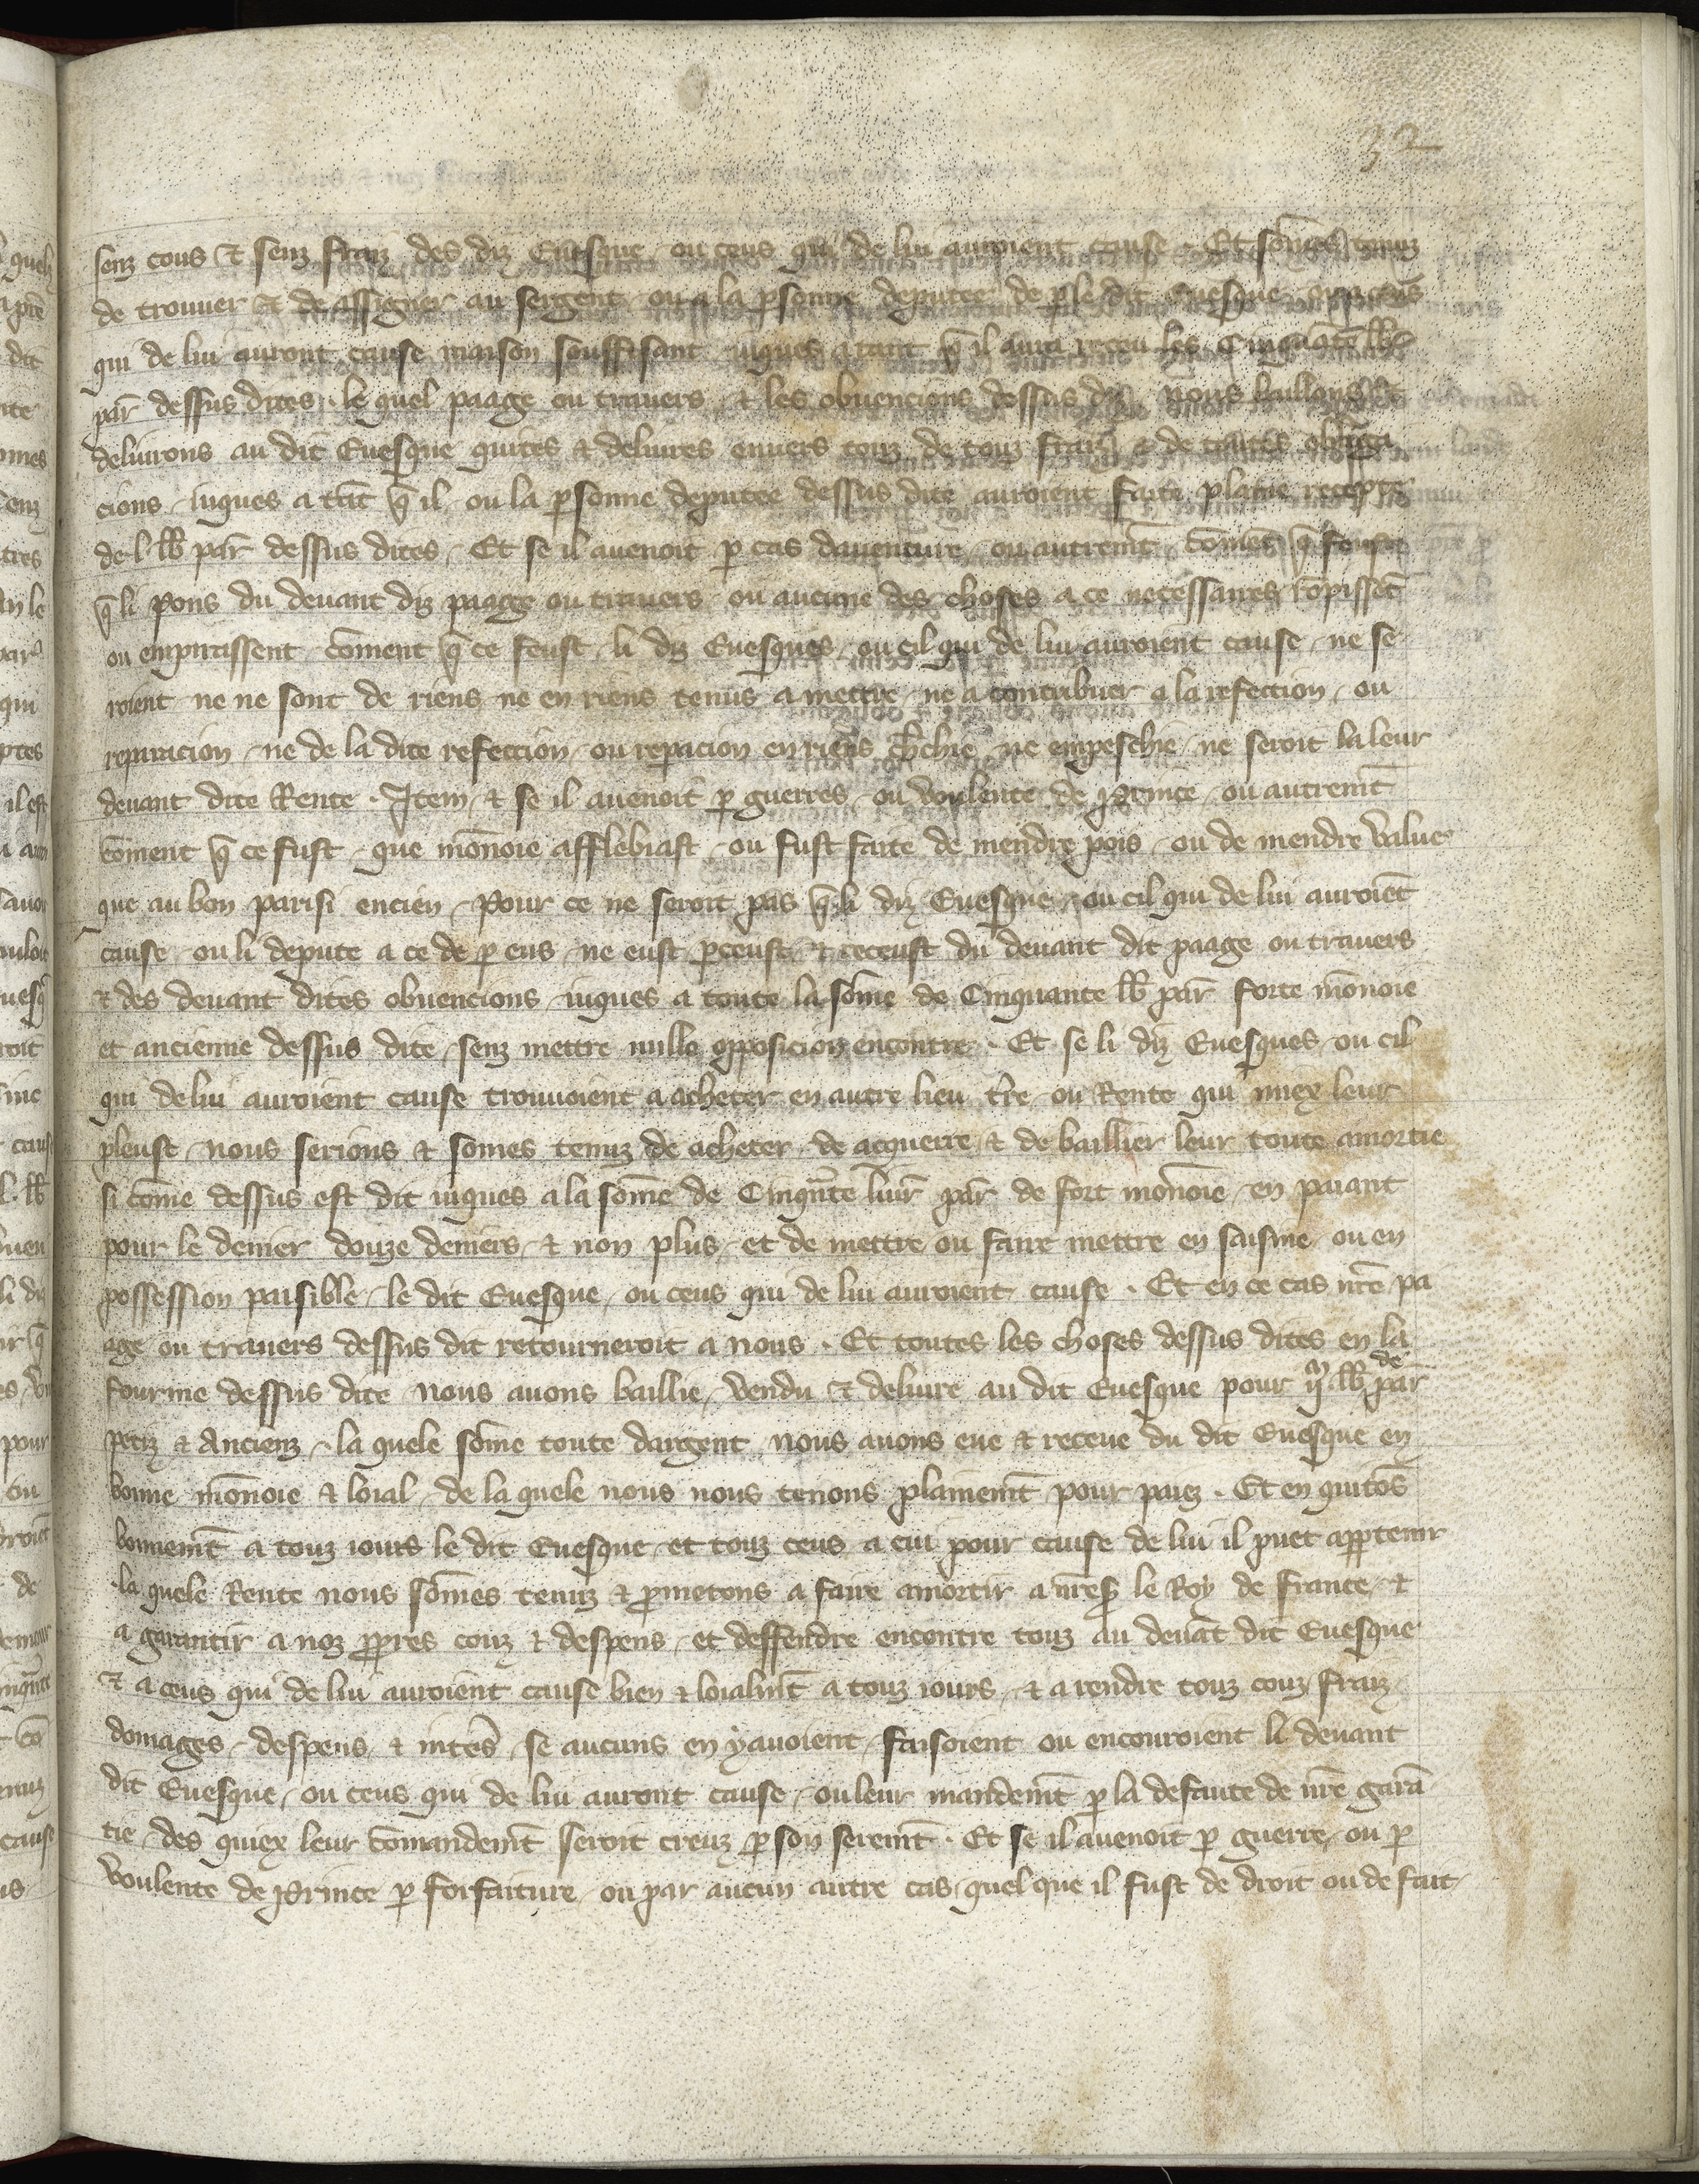 32
senz cous & senz fraiz des diz Euesque ou ceus qui de lui auroient cause . Et som̄es tenuz
de trouuer & de assigner au sergent ou a la ꝑsonne deputee de ꝑ le dit Euesque ou a ceus
qui de lui auront cause maison souffisant iuques a tant q̄ il aura receu les Cinquāte lb̄
par̄ dessus dites . le quel paage ou trauers & les obuencions dessus diz nous baillons &
deliurons au dit Euesque quites & deliures enuers touz de touz fraiz & de toutes obliga
cions iuques a tāt q̄ il ou la ꝑsonne deputee dessus dite auroient faite plaine recepte
de . l . lb̄ par̄ dessus dites . Et se il auenoit ꝑ cas dauenture ou autremt̄ com̄et q̄ feust
q̄ li pons du deuant diz paage ou trauers ou aucune des choses a ce necessaires rōpissēt
ou empirassent com̄ent q̄ ce feust li diz Euesques ou cil qui de lui auroient cause ne se
roient ne ne sont de riens ne en riens tenus a mettre ne a contribuer a la refection ou
reparacion ne de la dite refeccion ou repacion en riens ch̄chie ne empeschie ne seroit la leur
deuant dite Rente . Item & se il auenoit ꝑ guerres ou voulente de Prince ou autremt̄
com̄ent q̄ ce fust que mōnoie affiebiast ou fust faite de mendre pois ou de mendre value
que au bon parisi encien . Pour ce ne seroit pas q̄ li diz Euesque ou cil qui de lui auroiēt
cause ou li depute a ce de ꝑ eus ne eust ꝑceust & receust du deuant dit paage ou trauers
& des deuant dites obuencions iuques a toute la som̄e de Cinquante lb̄ par̄ forte mōnoie
et ancienne dessus dite senz mettre nulle opposicion encontre . Et se li diz Euesques ou cil
qui de lui auroient cause trouuoient a acheter en autre lieu tr̄e ou Rente qui miex leur
pleust nous serions & somes tenuz de acheter de acquerre & de baillier leur toute amortie
si com̄e dessus est dit iuques a la som̄e de Cinqn̄te liur̄ par̄ de fort mōnoie en paiant
pour le denier douze deniers & non plus et de mettre ou faire mettre en saisine ou en
possession paisible le dit Euesque ou ceus qui de lui auroient cause . Et en ce cas nr̄e pa
age ou trauers dessus dit retourneroit a nous . Et toutes les choses dessus dites en la
fourme dessus dite nous auons baillie vendu & deliure au dit Euesque pour lb̄ de par̄
petiz & Ancienz . la quele som̄e toute dargent nous auons eue & receue du dit Euesque en
bonne mōnoie & loial de la quele nous nous tenons plainemt̄ pour paiez . Et en quitōs
bonnemt̄ a touz iours le dit Euesque et touz ceus a cui pour cause de lui il puet apꝑtenir
la quele Rente nous som̄es tenuz & ꝓmetons a faire amortir a nr̄es̄ le Roy de france &
a garantir a noz ꝓpres couz & despens et deffendre encontre touz au deuāt dit Euesque
& a ceus qui de lui auroient cause bien & loialmt̄ a touz iours & a rendre touz couz fraiz
domages despens & intēs se aucuns en y auoient faisoient ou encouroient li deuant
dit Euesque ou ceus qui de lui auront cause ou leur mandemt̄ ꝑ la defaute de nr̄e garā
tie des quiex leur com̄andemt̄ seroit creuz ꝑ son seremt̄ . Et se il auenoit ꝑ guerre ou ꝑ
voulente de Prince ꝑ forfaiture ou par aucun autre cas quel que il fust de droit ou de fait